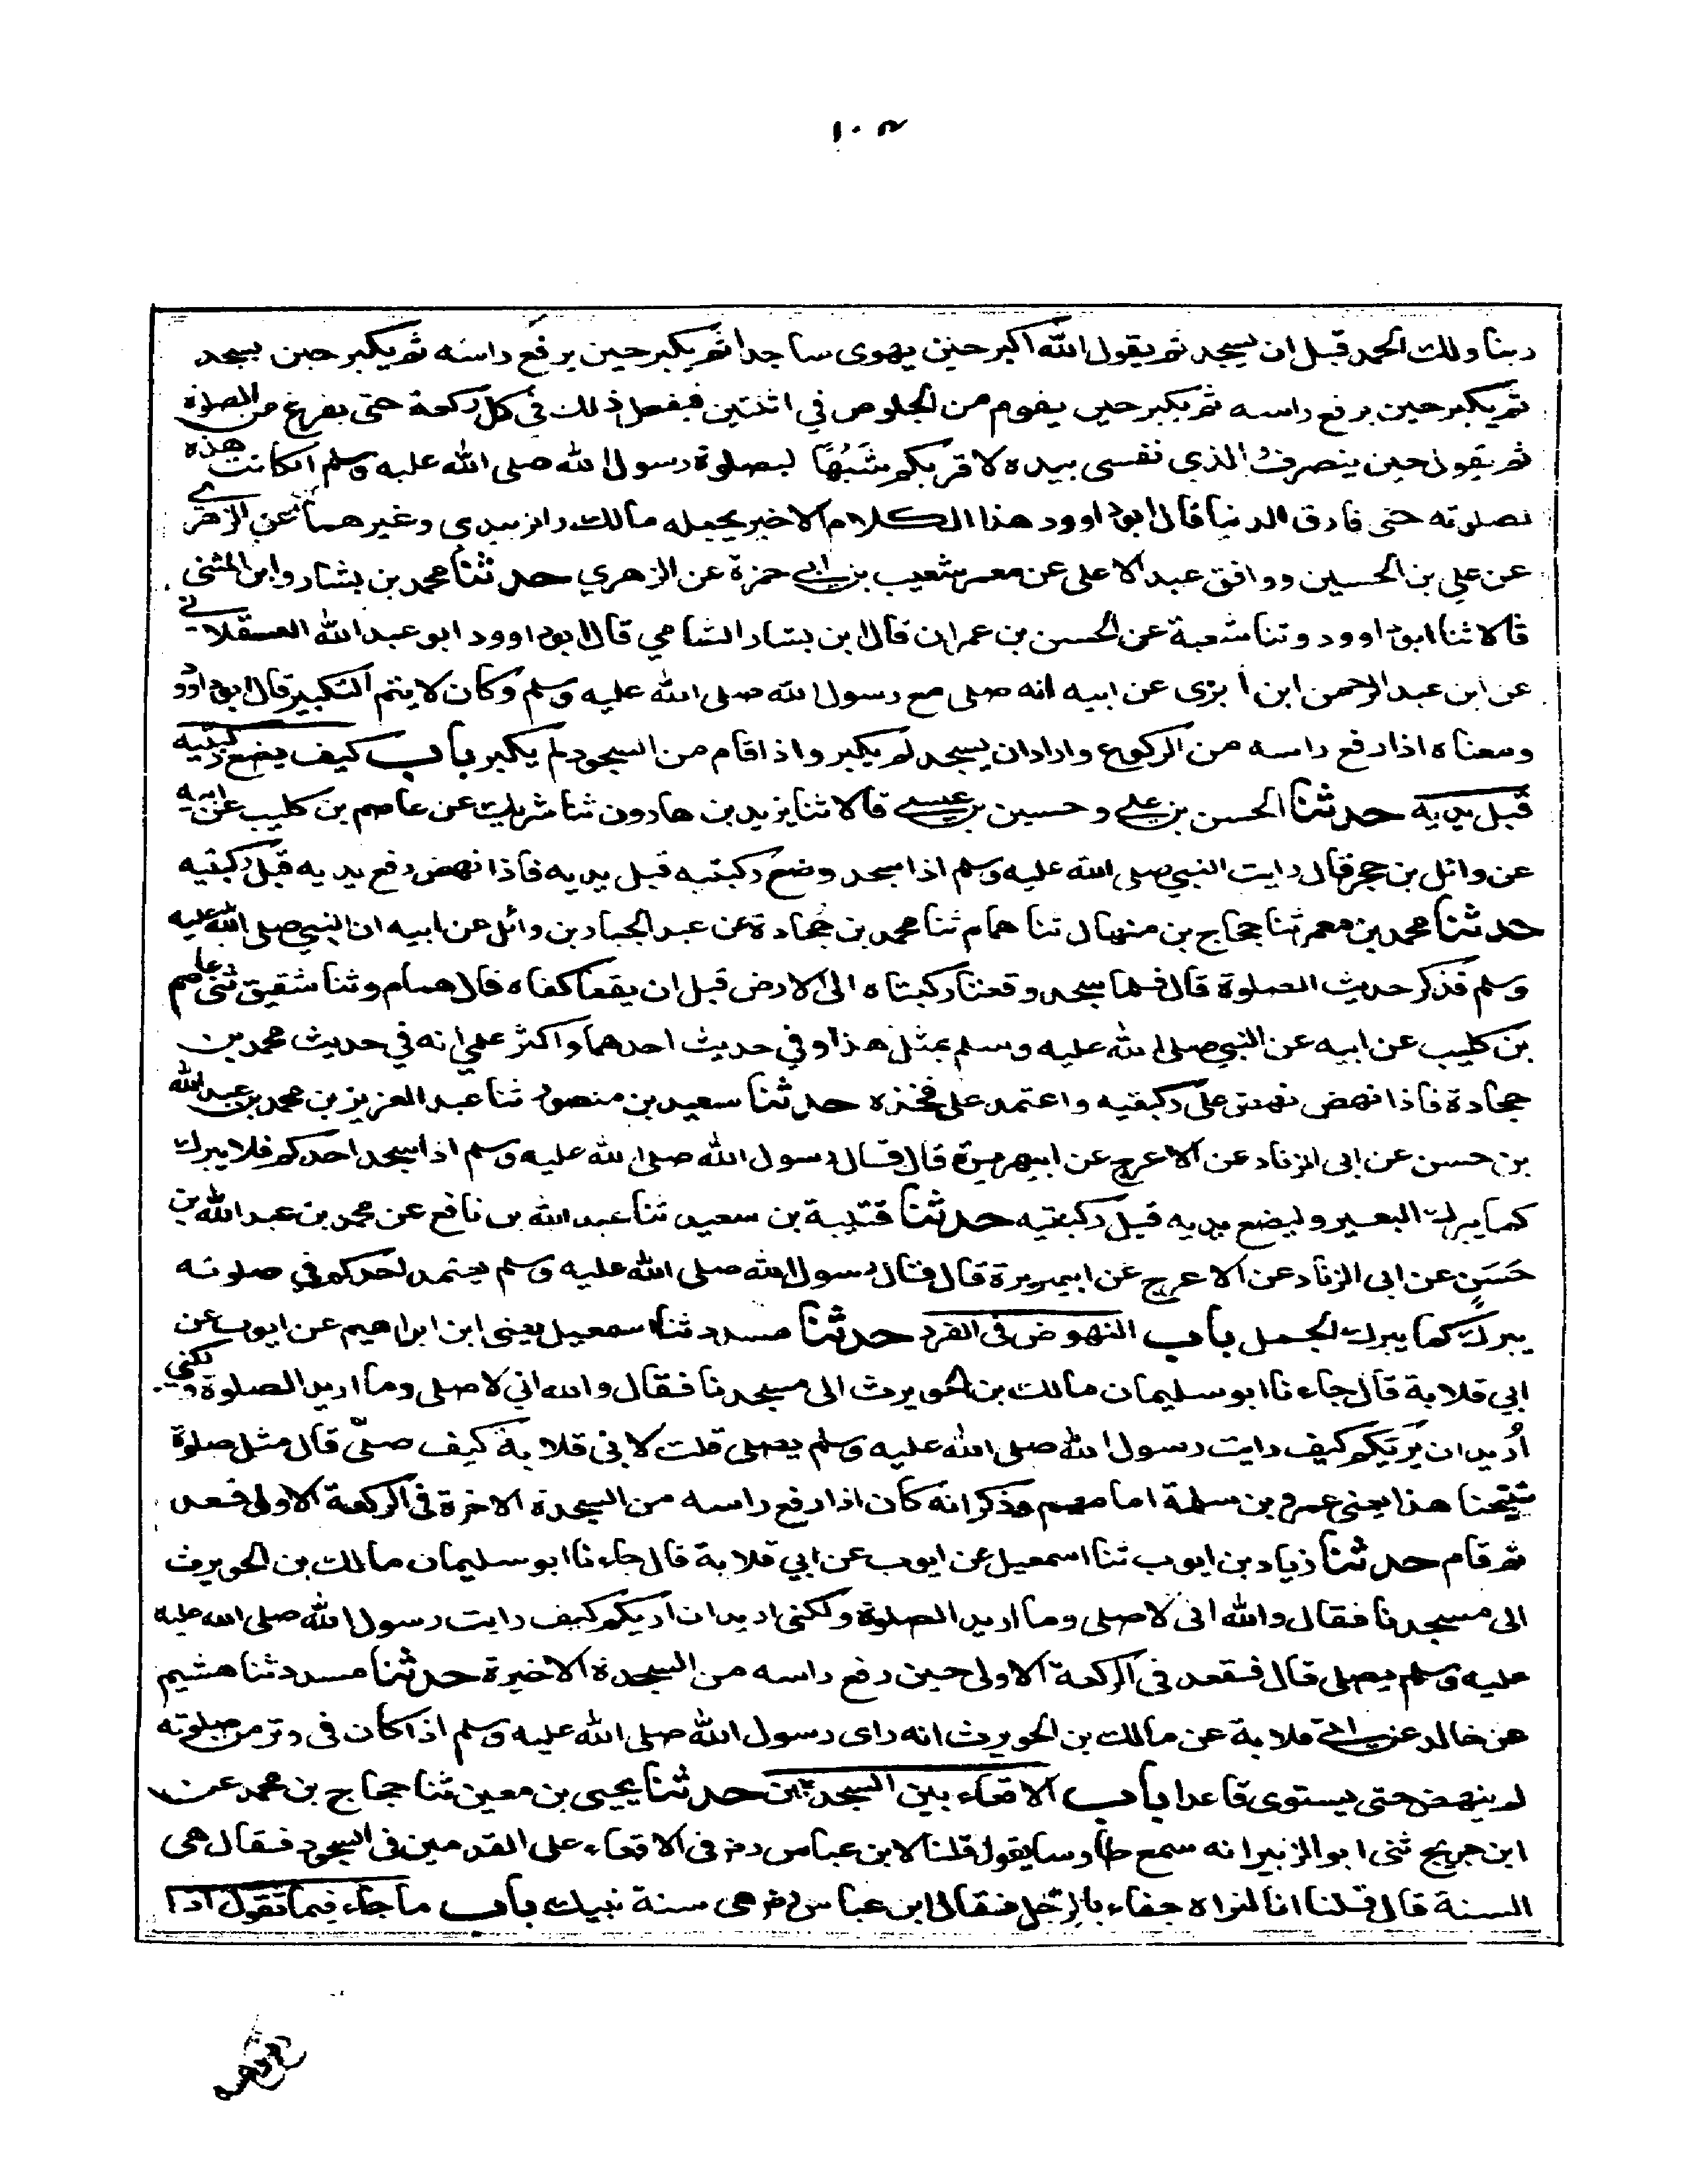 ربنا ولك الحمد قبل ان يسجد ثم يقول الله اكبر حين يهوى ساجدا ثم يكبر حين يرفع راسه ثم يكبر حين يسجد
ثم يكبر حين يرفع راسه ثم يكبر حين يقوم من الجلوس في اثنتين فيفعل ذلك في كل ركعة حتى يفرغ من الصلوة
ثم يقول حين ينصرف الذي نفسى بيده لاقربكم شَبَهًا لبصلوة رسول الله صلى الله عليه وسلم ان كانت هذه
لصلوته حتى فارق الدنيا قال ابو داوود هذا الكلام الاخير يجعله مالك والزبيدى وغيرهما عن الزهري
عن علي بن الحسين ووافق عبد الاعلى عن معمر شعيب بن ابي حمزة عن الزهري حدثنا محمد بن بشار وابن المثنى
قالا ثنا ابو داوود وثنا شعبة عن الحسن بن عمران قال ابن بشار الشامي قال ابو داوود ابو عبد الله العسقلاني
عن ابن عبد الرحمن ابن أبزى عن ابيه انه صلى مع رسول الله صلى الله عليه وسلم وكان لا يتم التكبير قال ابو داوود
ومعناه اذا رفع راسه من الركوع واراد ان يسجد لم يكبر واذا قام من السجود لم يكبر باب كيف يضع ركبتيه
قبل يديه حدثنا الحسن بن علي وحسين بن عيسى قالا ثنا يزيد بن هارون ثنا شريك عن عاصم بن كليب عن ابيه
عن وائل بن حجر قال رايت النبي صلى الله عليه وسلم اذا سجد وضع ركبتيه قبل يديه فاذا نهض رفع يديه قبل ركبتيه
حدثنا محمد بن معمر ثنا حجاج بن منهال ثنا همام ثنا محمد بن جحادة عن عبد الجبار بن وائل عن ابيه ان النبي صلى الله عليه
وسلم فذكر حديث الصلوة قال فلما سجد وقعتا ركبتاه الى الارض قبل ان يقعا كفاه قال همام وثنا شقيق ثنى عاصم
بن كليب عن ابيه عن النبي صلى الله عليه وسلم بمثل هذا وفي حديث احدهما واكثر علمي انه في حديث محمد بن
جحادة فاذا نهض نهض على ركبتيه واعتمد على فخذه حدثنا سعيد بن منصور ثنا عبد العزيز بن محمد بن عبد الله
بن حسن عن ابى الزناد عن الاعرج عن ابيهريرة قال قال رسول الله صلى الله عليه وسلم اذا سجد احدكم فلا يبرك
كما يبرك البعير وليضع يديه قبل ركبتيه حدثنا قتيبة بن سعيد ثنا عبد الله بن نافع عن محمد بن عبد الله بن
حَسَنٍ عن ابى الزناد عن الاعرج عن ابيهريرة قال قال رسول الله صلى الله عليه وسلم يعتمد احدكم في صلوته
يبرك كما يبرك الجمل باب النهوض فى الفرد حدثنا مسدد ثنا اسمعيل يعنى ابن ابراهيم عن ايوب عن
ابي قلابة قال جاءنا ابو سليمان مالك بن الحويرث الى مسجدنا فقال والله اني لاصلى وما اريد الصلوة ولكني
أُريد ان يَرَيَكم كيف رايت رسول الله صلى الله عليه وسلم يصلى قلت لابى قلابة كيف صلّى قال مثل صلوة
شيخنا هذا يعنى عمرو بن سلمة امامهم وذكر انه كان اذا رفع راسه من السجدة الاخرة فى الركعة الاولى قعد
ثم قام حدثنا زياد بن ايوب ثنا اسمعيل عن ايوب عن ابي قلابة قال جاءنا ابو سليمان مالك بن الحويرث
الى مسجدنا فقال والله انى لاصلى وما اريد الصلوة ولكنى اريد ان اريكم كيف رايت رسول الله صلى الله عليه
عليه وسلم يصلى قال فقعد فى الركعة الاولى حين رفع راسه من السجدة الاخيرة حدثنا مسدد ثنا هشيم
عن خالد عن ابي قلابة عن مالك بن الحويرث انه راى رسول الله صلى الله عليه وسلم اذا كان فى وتر من صلوته
لم ينهض حتى يستوى قاعدا باب الاقعاء بين السجدتين حدثنا يحيى بن معين ثنا حجاج بن محمد عن
ابن جريج ثنى ابو الزبير انه سمع طاوسا يقول قلنا لابن عباس رض فى الاقعاء على القدمين فى السجود فقال هى
السنة قال قلنا انا لنراه جفاء بالرَّجُل فقال ابن عباس رض هى سنة نبيك باب ما جاء فيما تقول اذا